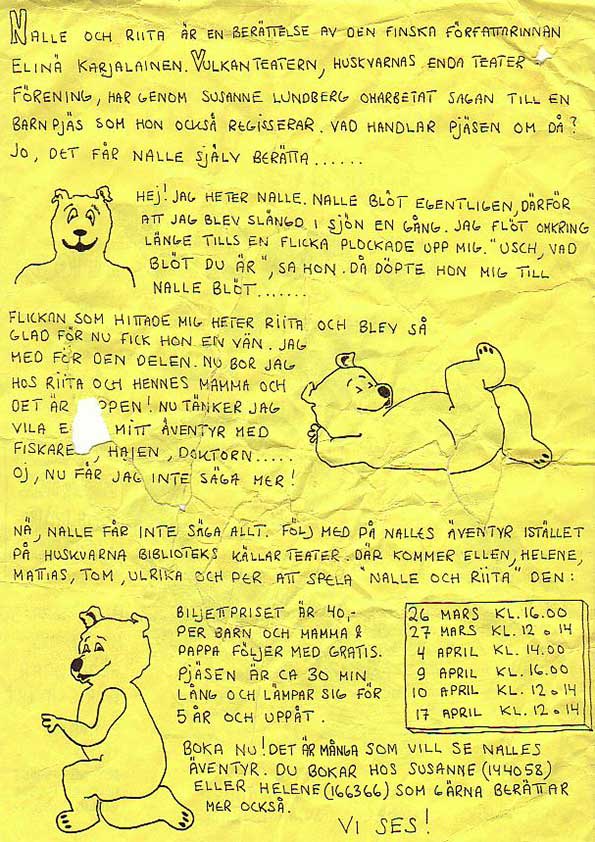 NALLE OCH RIITA ÄR EN BERÄTTELSE AV DEN FINSKA FÖRFATTARINNAN
ELINÄ KARJALAINEN. VULKANTEATERN, HUSKVARNAS ENDA TEATER
FÖRENING, HAR GENOM SUSANNE LUNDBERG OMARBETAT SAGAN TILL EN
BARNPJÄS SOM HON OCKSÅ REGISSERAR. VAD HANDLAR PJÄSEN OM DÅ?
JO, DET FÅR NALLE SJÄLV BERÄTTA......
HEJ! JAG HETER NALLE. NALLE BLÖT EGENTLIGEN, DÄRFÖR
ATT JAG BLEV SLÄNGD I SJÖN EN GÅNG. JAG FLÖT OMKRING
LÄNGE TILLS EN FLICKA PLOCKADE UPP MIG. "USCH, VAD
BLÖT DU ÄR", SA HON. DÅ DÖPTE HON MIG TILL
NALLE BLÖT.......
FLICKAN SOM HITTADE MIG HETER RIITA OCH BLEV SÅ
GLAD FÖR NU FICK HON EN VÄN. JAG
MED FÖR DEN DELEN. NU BOR JAG
HOS RIITA OCH HENNES MAMMA OCH
DET ÄR PPEN! NU TÄNKER JAG
VILA E MITT ÄVENTYR MED
FISKARE , HAJEN, DOKTORN.....
OJ, NU FÅR JAG INTE SÄGA MER!
NÄ, NALLE FÅR INTE SÄGA ALLT. FÖLJ MED PÅ NALLES ÄVENTYR ISTÄLLET
PÅ HUSKVARNA BIBLIOTEKS KÄLLARTEATER. DÄR KOMMER ELLEN, HELENE,
MATTIAS, TOM, ULRIKA OCH PER ATT SPELA "NALLE OCH RIITA" DEN:
BILJETTPRISET ÄR 40,-
PER BARN OCH MAMMA &
PAPPA FÖLJER MED GRATIS.
PJÄSEN ÄR CA 30 MIN
LÅNG OCH LÄMPAR SIG FÖR
5 ÅR OCH UPPÅT.
26 MARS KL. 16.00
27 MARS KL. 12 o 14
4 APRIL KL. 14.00
9 APRIL KL. 16.00
10 APRIL KL. 12 o 14
17 APRIL KL. 12 o 14
BOKA NU! DET ÄR MÅNGA SOM VILL SE NALLES
ÄVENTYR. DU BOKAR HOS SUSANNE (144058)
ELLER HELENE (166366) SOM GÄRNA BERÄTTAR
MER OCKSÅ.
VI SES!